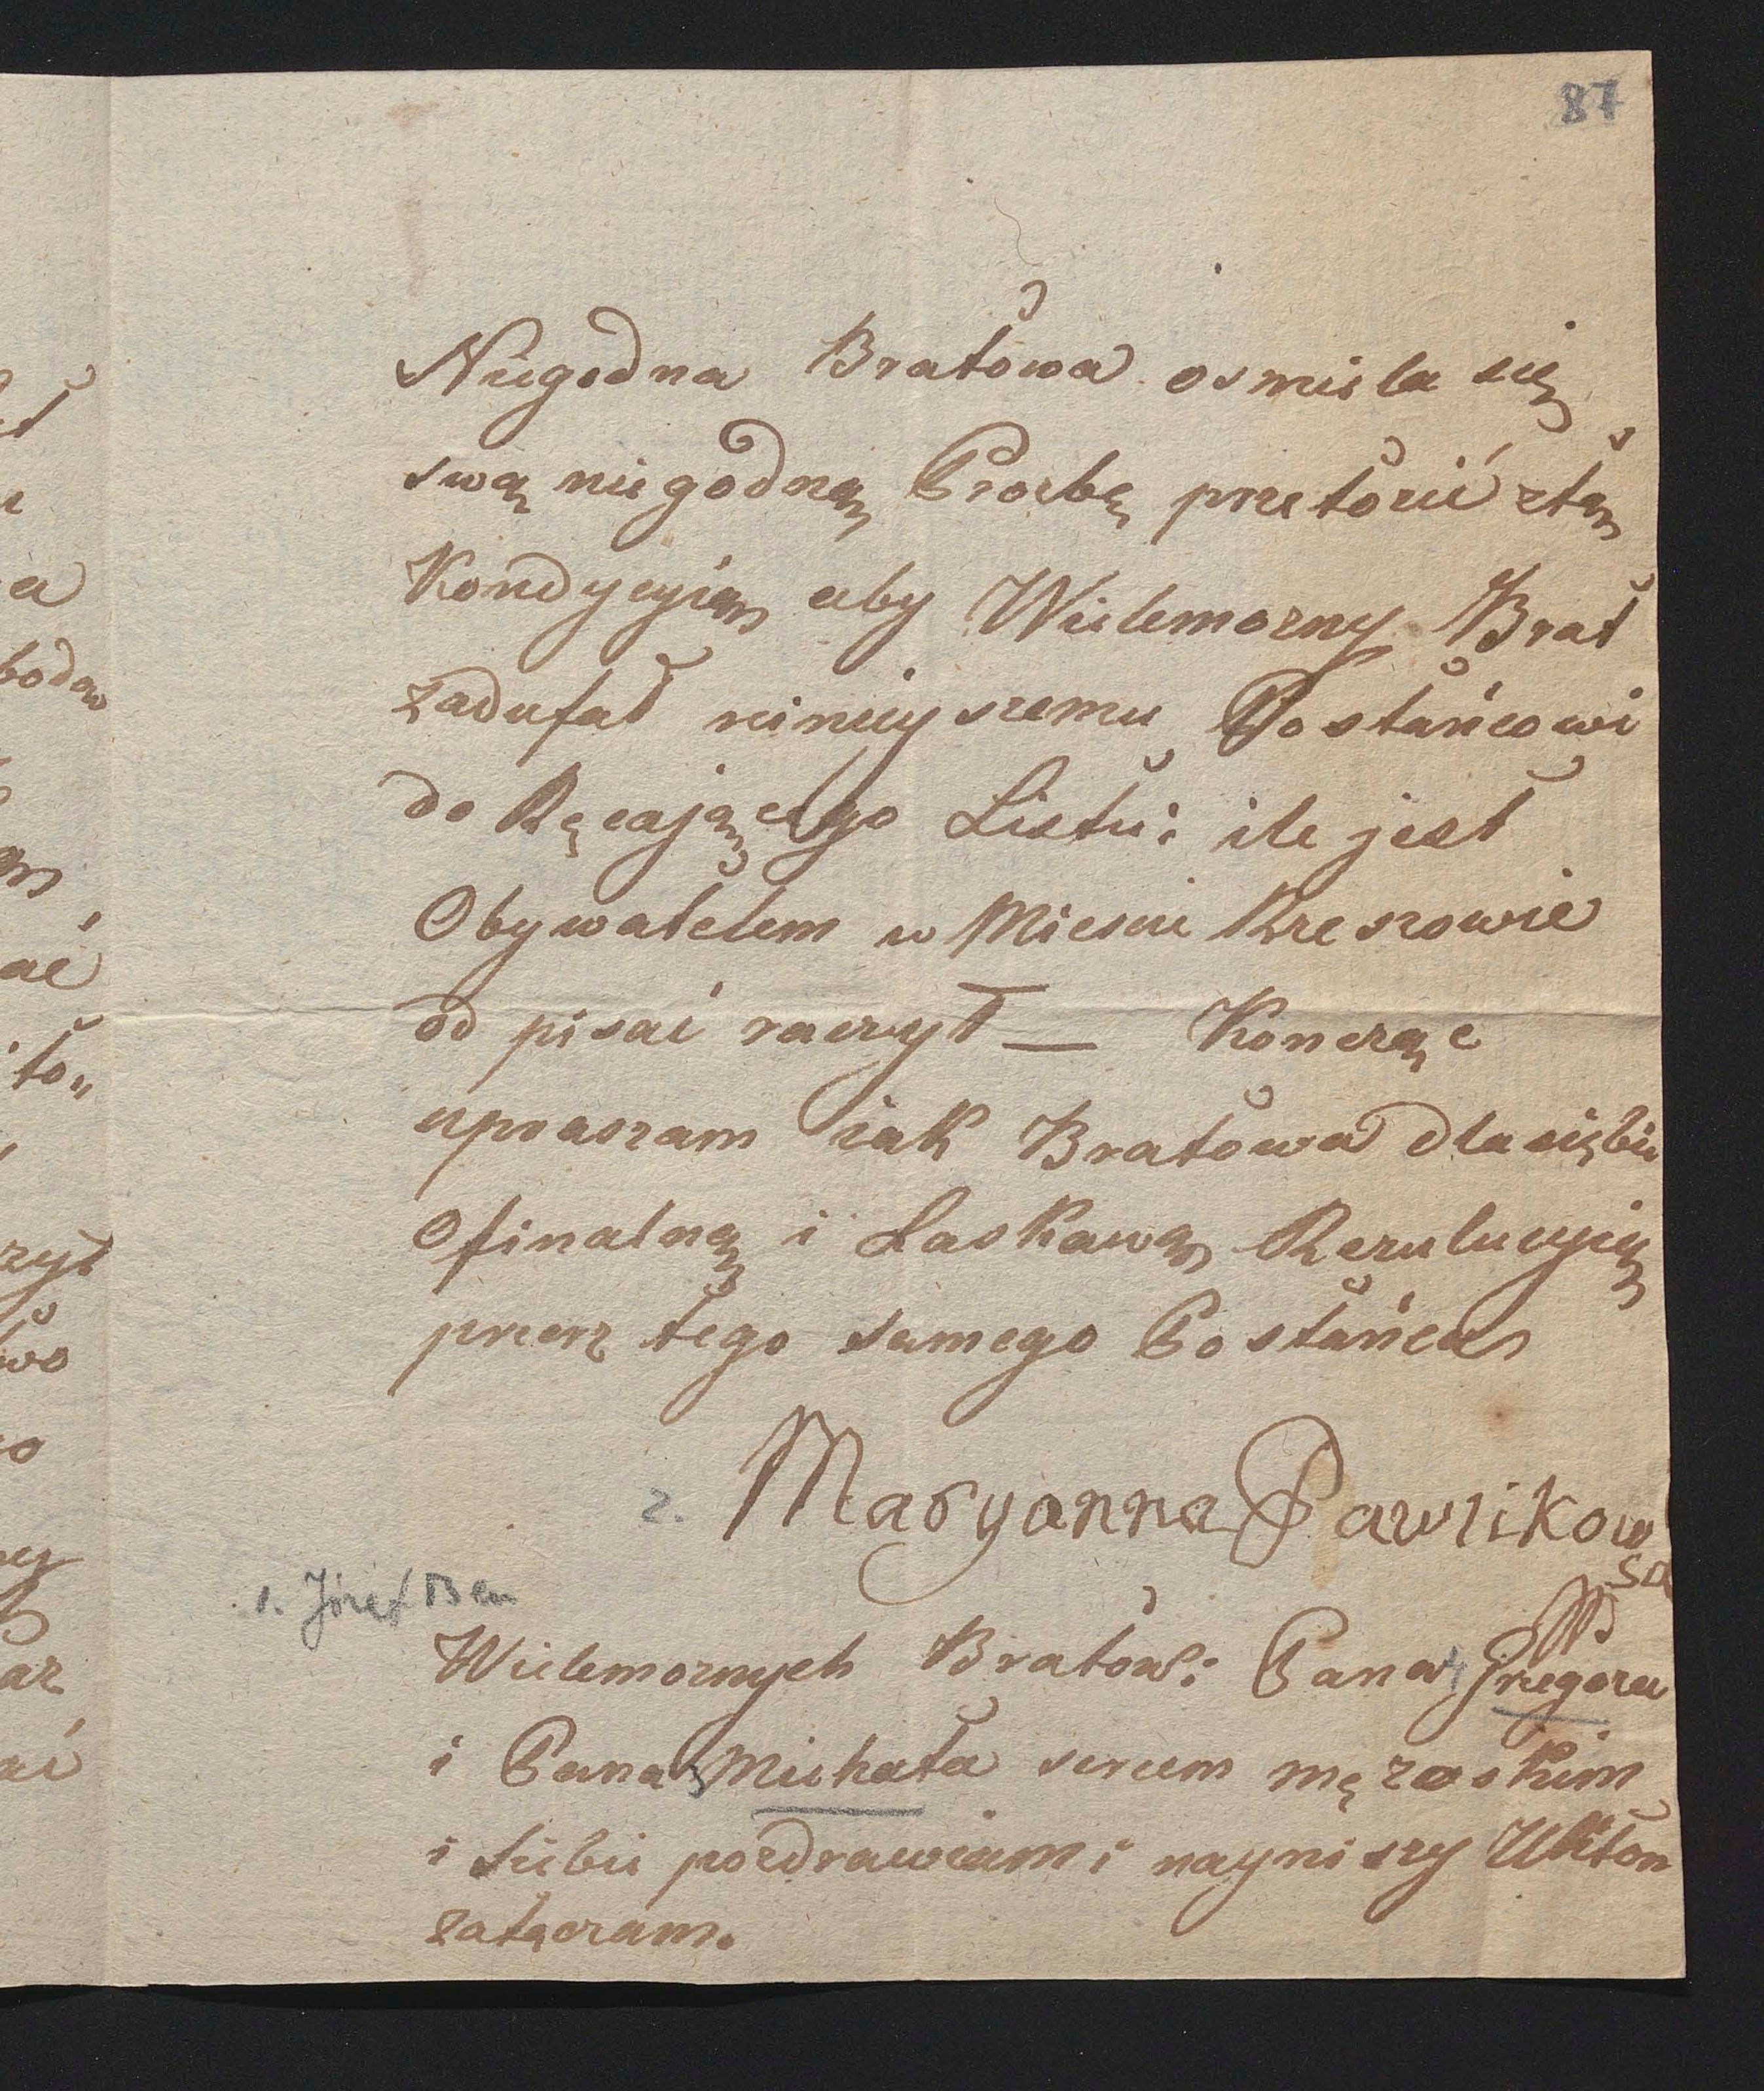 87
Niegodna Bratowa osmiela się
swą niegodną Prozbę przełożić ztą
Kondycyią aby Wielemozny Brat
zadufał niniejszemu Posłańcowi
do Ręcającego Listu: ile jest
Obywatelem w Miescie Rzeszowie
od pisać raczył — Koncząc
upraszam iak Bratowa dla siębie
o finalną i Laskawą Rezulucyią
przez tego samego Posłańca
2. Maryanna Pawlikow
ska
1. Józef Ben
Wielemoznych Bratów: Pana Grzegorza
i Pana Michała sercem męzoskim
i Siebie pozdrawiam i nayniszy Ukłon
załączam.